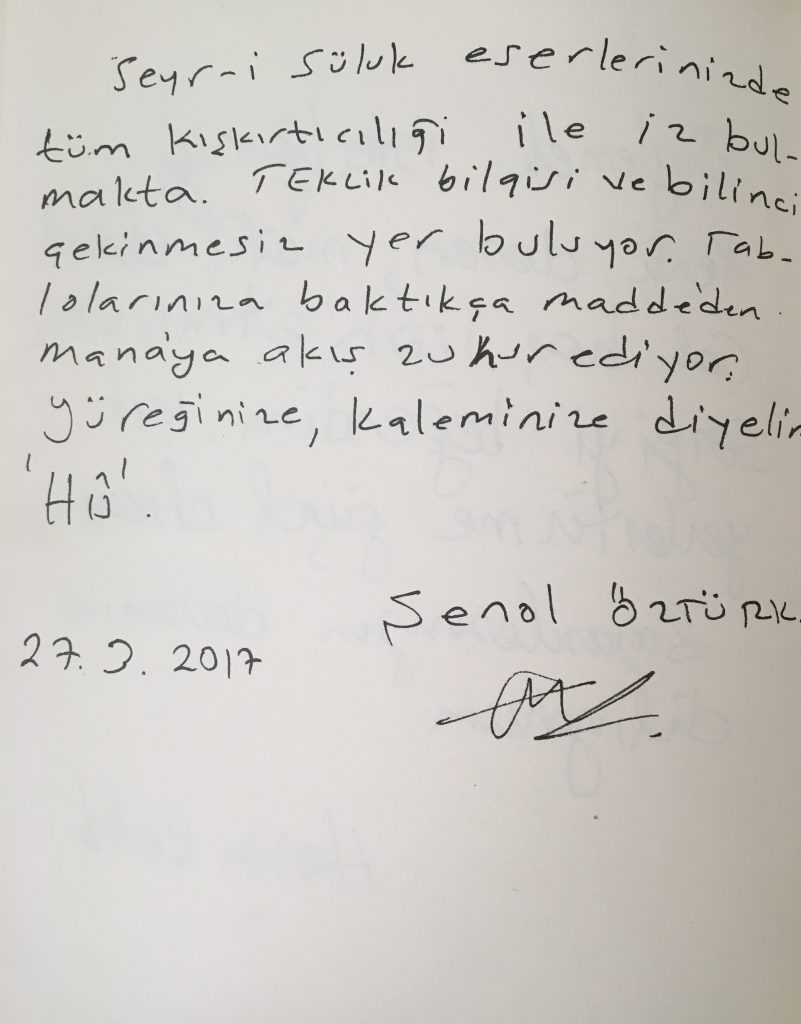 Seyr-i Süluk eserlerinizde
tüm kışkırtıcılığı ile iz bul-
makta. TEKLİK bilgisi ve bilinci
çekinmesiz yer buluyor. Tab-
lolarınıza baktıkça madde'den
mana'ya akış zuhur ediyor.
Yüreğinize, kaleminize diyelim
'Hû'.
Şenol ÖZTÜRK.
27.3.2017